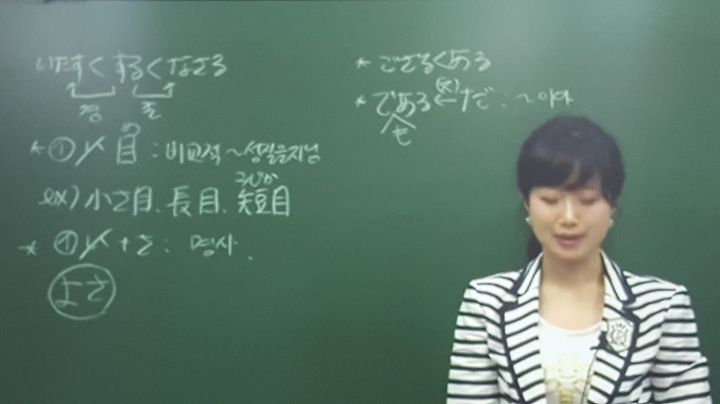 いたす く する く なさる
겸 존
め
* ① い 目 : 비교적 ~성질을지님
みじか
ex) 小さ目、長目、短目
* ① い + さ : 명사.
よさ
* ござる く ある
(x)
* である ← だ : ~이다.
も